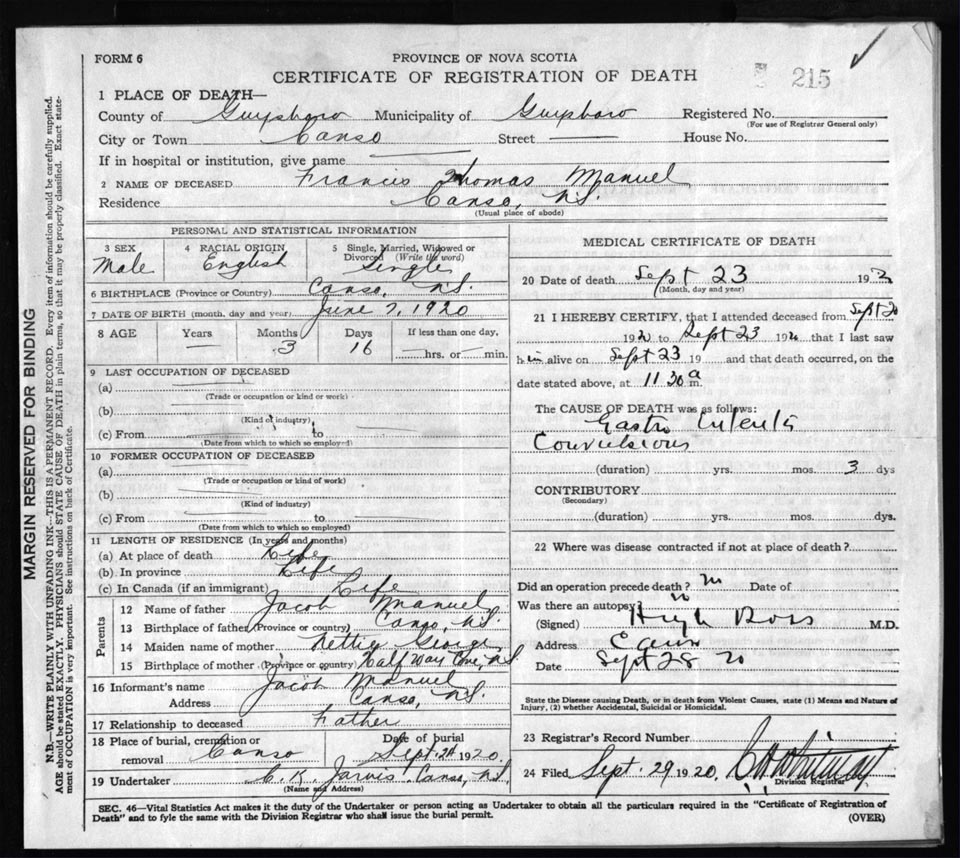 FORM 6
PROVINCE OF NOVA SCOTIA
CERTIFICATE OF REGISTRATION OF DEATH
215
1 PLACE OF DEATH—
County of Guysboro Municipality of Guysboro Registered No.
(For use of Registrar General only)
City or Town Canso Street — House No.
If in hospital or institution, give name
2 NAME OF DECEASED Francis Thomas Manuel
Residence Canso, N.S.
(Usual place of abode)
PERSONAL AND STATISTICAL INFORMATION
3 SEX 4 RACIAL ORIGIN 5 Single, Married, Widowed or Divorced (Write the word)
Male English Single
6 BIRTHPLACE (Province or Country) Canso, N.S.
7 DATE OF BIRTH (month, day and year) June 7, 1920
8 AGE Years Months Days If less than one day,
— 3 16 — hrs. or — min.
9 LAST OCCUPATION OF DECEASED
(a)
(Trade or occupation or kind or work)
(b)
(Kind of industry)
(c) From to
(Date from which to which so employed)
10 FORMER OCCUPATION OF DECEASED
(a)
(Trade or occupation or kind of work)
(b)
(Kind of industry)
(c) From to
(Date from which to which so employed)
11 LENGTH OF RESIDENCE (In years and months)
(a) At place of death Life
(b) In province Life
(c) In Canada (if an immigrant) Life
Parents
12 Name of father Jacob Manuel
13 Birthplace of father (Province or country) Canso, N.S.
14 Maiden name of mother Nettie George
15 Birthplace of mother (Province or country) Half Way Cove, N.S.
16 Informant's name Jacob Manuel
Address Canso, N.S.
17 Relationship to deceased Father
18 Place of burial, cremation or removal Canso Date of burial Sept. 24 1920
19 Undertaker C. K. Jarvis Canso, N.S.
(Name and Address)
MEDICAL CERTIFICATE OF DEATH
20 Date of death Sept 23 192
(Month, day and year)
21 I HEREBY CERTIFY, that I attended deceased from Sept 20
192 to Sept 23 192 that I last saw
him alive on Sept 23 19 and that death occurred, on the
date stated above, at 11 30 a m.
The CAUSE OF DEATH was as follows:
Gastro
Convulsions
(duration) yrs. mos. 3 dys
CONTRIBUTORY
(Secondary)
(duration) yrs. mos. dys.
22 Where was disease contracted if not at place of death?
Did an operation precede death? no Date of
Was there an autopsy? no
(Signed) Hugh Ross M.D.
Address
Date Sept 28 20
State the Disease causing Death, or in death from Violent Causes, state (1) Means and Nature of
Injury, (2) whether Accidental, Suicidal or Homicidal.
23 Registrar's Record Number
24 Filed Sept. 29 1920, Whitman
Division Registrar
SEC. 46—Vital Statistics Act makes it the duty of the Undertaker or person acting as Undertaker to obtain all the particulars required in the "Certificate of Registration of
Death" and to fyle the same with the Division Registrar who shall issue the burial permit.
(OVER)
MARGIN RESERVED FOR BINDING
N.B.—WRITE PLAINLY WITH UNFADING INK—THIS IS A PERMANENT RECORD. Every item of information should be carefully supplied.
AGE should be stated EXACTLY. PHYSICIANS should STATE CAUSE OF DEATH in plain terms, so that it may be properly classified. Exact state-
ment of OCCUPATION is very important. See instructions on back of Certificate.